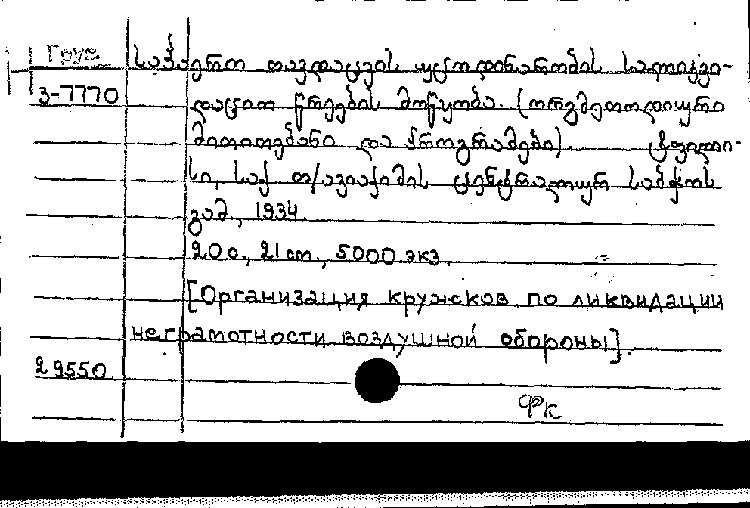 Груз. საჰაერო თავდაცვის უცოდინარობის სალიკვი-
3-7770 დაციო წრეების მოწყობა. (ორგმეთოდიური
მითითებანი და პროგრამები). ტფილი-
სი, საქ. ო/ავიაქიმის ცენტრალიურ საბჭოს
გამ., 1934.
20 с., 21 см., 5000 экз.
[Организация кружков по ликвидации
неграмотности воздушной обороны].
29550
ФК